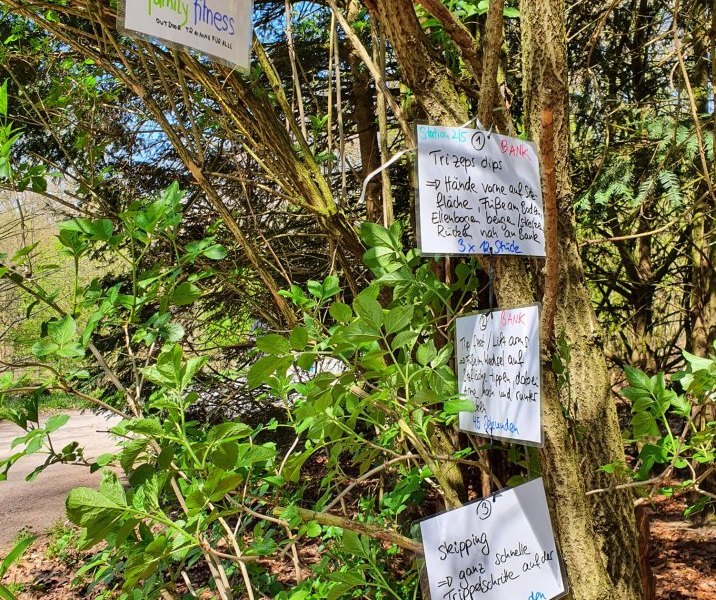 family fitness
OUTDOOR TRAINING FÜR ALLE
Station 2/5 ① BANK
Trizeps dips
⇒ Hände vorne auf Sitz
fläche Füße am Boden
Ellenbogen beugen/strecken
Rücken nah an Bank
3 x 12 Stück
② BANK
Tip feet / Lift arms
auf
tippen, dabei
Arme hoch und runter
45 Sekunden
③
skipping
⇒ ganz schnelle
Trippelschritte auf der